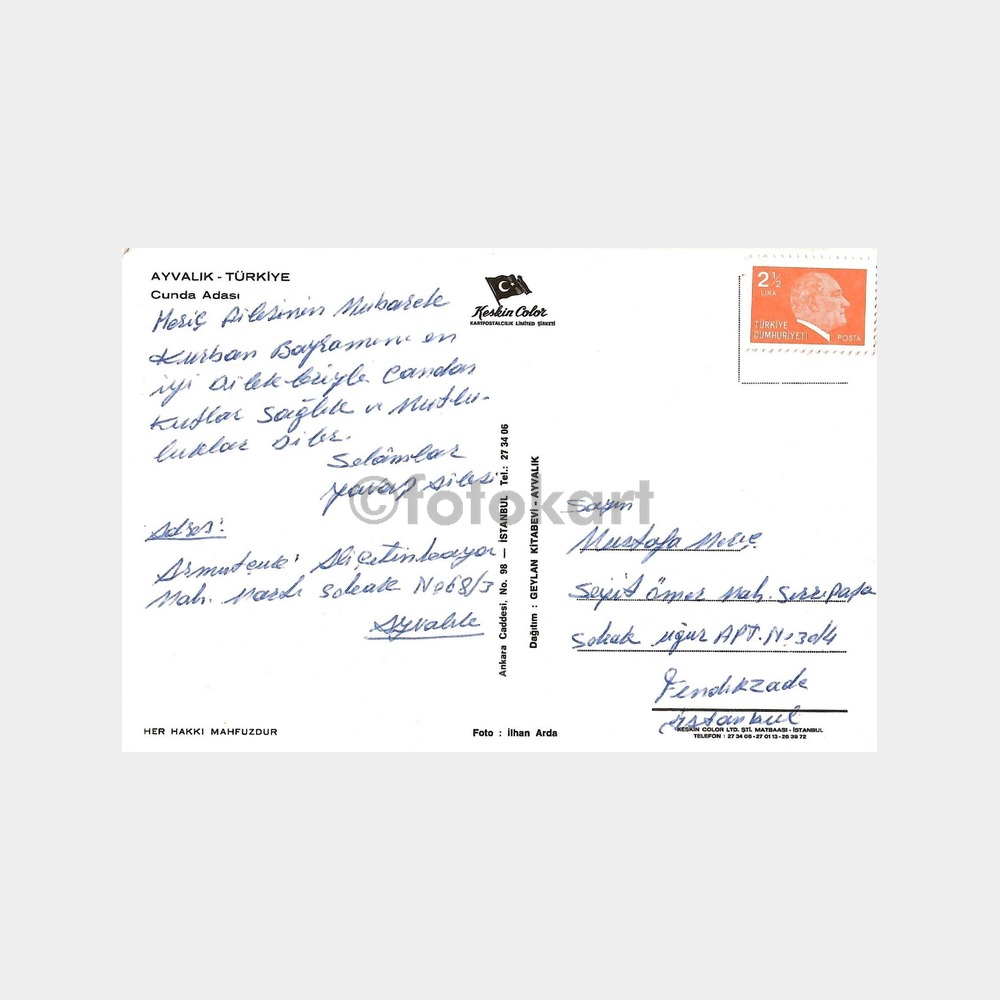 AYVALIK - TÜRKİYE
Cunda Adası
Meriç Ailesinin Mübarek
Kurban Bayramını en
iyi Dilekleriyle Candan
Kutlar Sağlık ve Mutlu-
luklar Diler.
Selâmlar
Yavaş Ailesi
Adres:
Armutçuk Aliçetinkaya
Mah. sokak No 68/3
Ayvalık
HER HAKKI MAHFUZDUR
Keskin Color
KARTPOSTALCILIK LIMITED ŞİRKETİ
Ankara Caddesi, No. 98 — İSTANBUL Tel.: 27 34 06
Dağıtım : GEYLAN KİTABEVİ - AYVALIK
Foto : İlhan Arda
©fotokart
2 ½
LIRA
TÜRKİYE
CUMHURİYETİ
POSTA
Sayın
Mustafa Meriç
Seyit Ömer Mah. Sırrıpaşa
Sokak uğur APT. No: 30/4
Fındıkzade
İstanbul
KESKİN COLOR LTD. ŞTİ. MATBAASI - İSTANBUL
TELEFON : 27 34 06 - 27 01 13 - 26 39 72